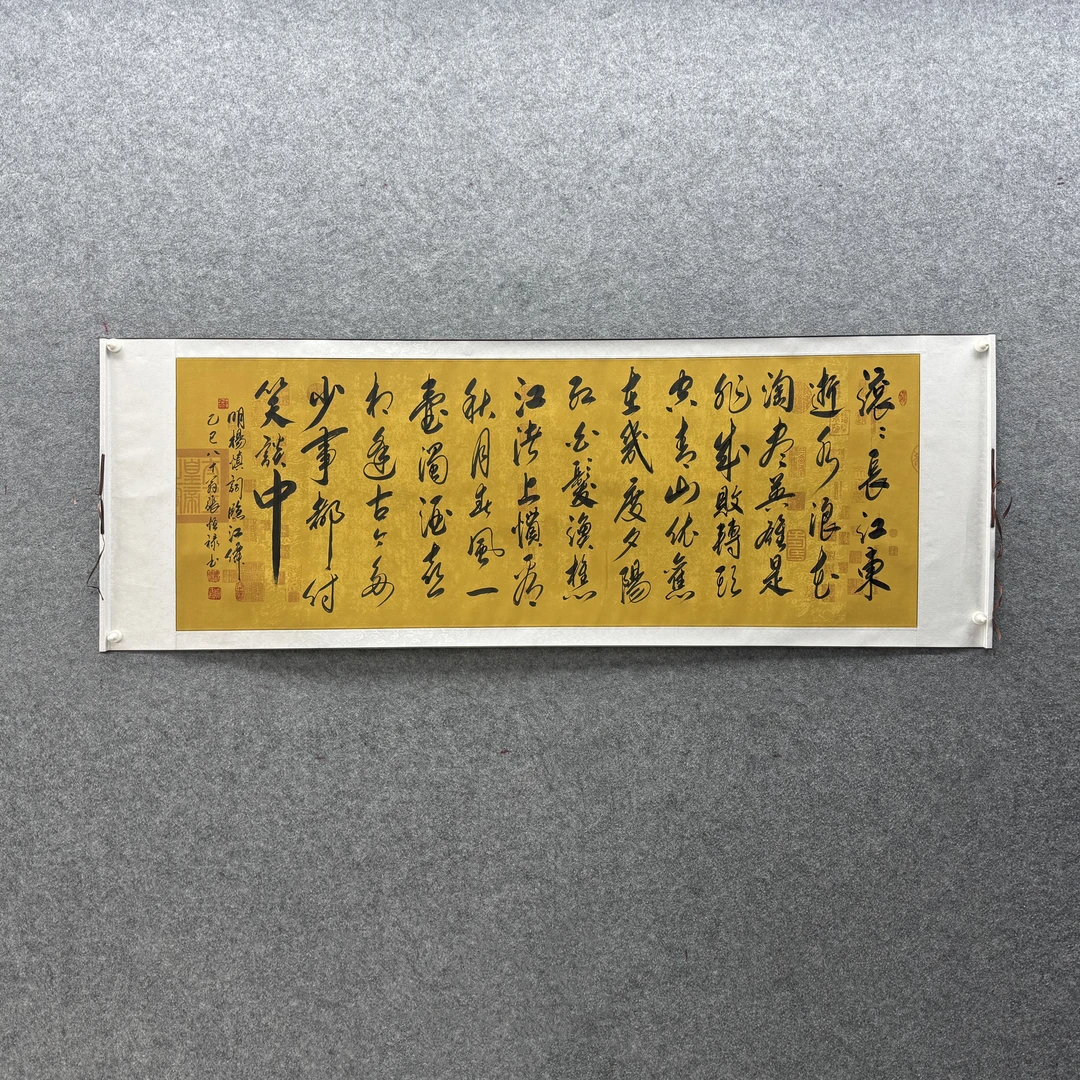 滚〻長江東
逝水浪花
淘尽英雄是
非成敗轉頭
空青山依舊
在幾度夕陽
红白髮漁樵
江渚上慣看
秋月春風一
壺濁酒喜
相逢古今多
少事都付
笑談中
明楊慎詞臨江僊
乙巳八十翁張書